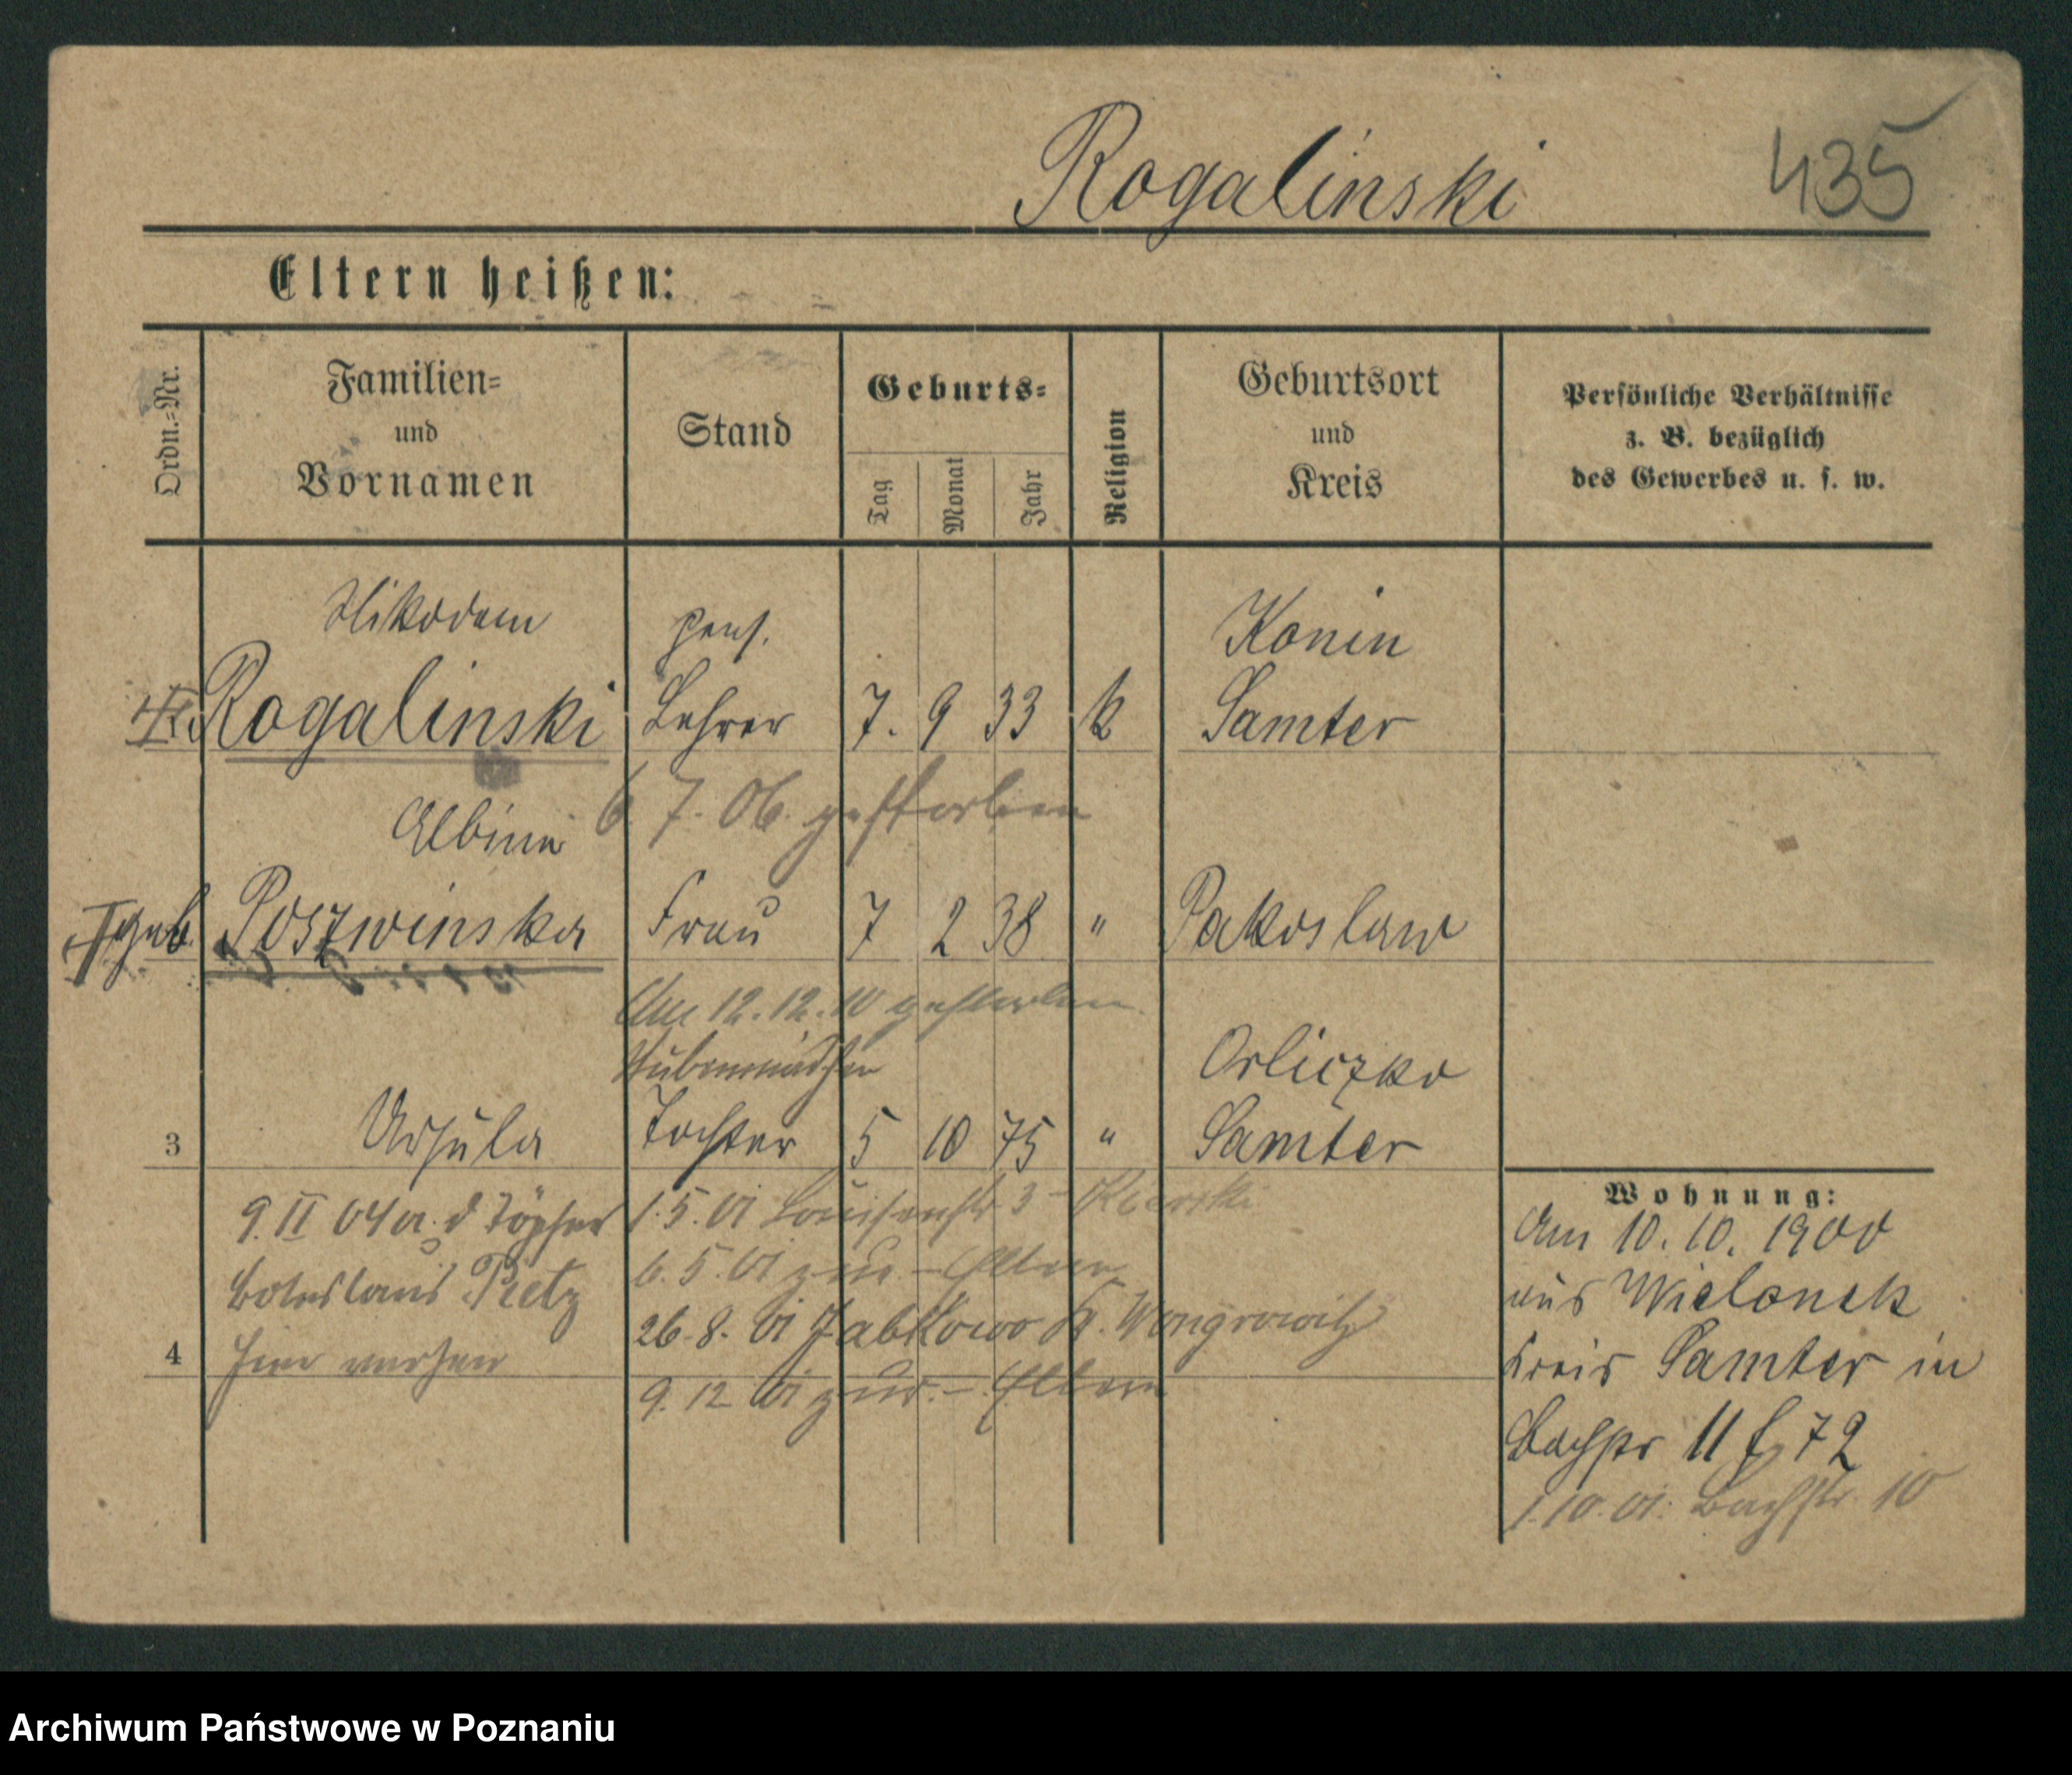 Rogalinski 435
Eltern heißen:
Ordn.=Nr.
Familien=
und
Vornamen
Stand
Geburts=
Tag
Monat
Jahr
Religion
Geburtsort
und
Kreis
Persönliche Verhältnisse
z. B. bezüglich
des Gewerbes u. s. w.
Nikodem pens. Konin
Rogalinski Lehrer 7. 9 33 k Samter
6. 7. 06. gestorben
Albina
geb. Poszwinska Frau 7 2 38 " Pakoslaw
Am 12. 12. 10 gestorben
Stubenmädchen Orliczko
3 Ursula Tochter 5 10 75 " Samter
9. II 04 a. d Töpfer
Boleslaus Pietz
4 hier
1. 5. 01 Louisenstr 3 -
6. 5. 01 zur. - Eltern
26. 8. 01 Jabkowo Kr. Wongrowitz
9. 12 01 zur. - Eltern
Wohnung:
Am 10. 10. 1900
aus Wielonek
Kreis Samter in
Bachstr 11 f. 72
1. 10. 01. Bachstr. 10
Archiwum Państwowe w Poznaniu